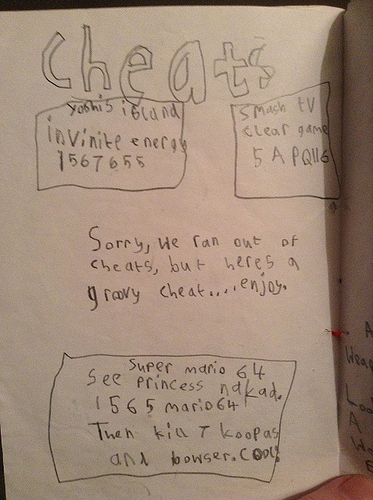 cheats
yoshis island
invinite energy
1567655
smash tv
clear game
5 A PQ116
Sorry, we ran out of
cheats, but heres a
groovy cheat....enjoy.
Super mario 64
see princess nakad.
1565 mario64
Then kill 7 koopas
and bowser. cool